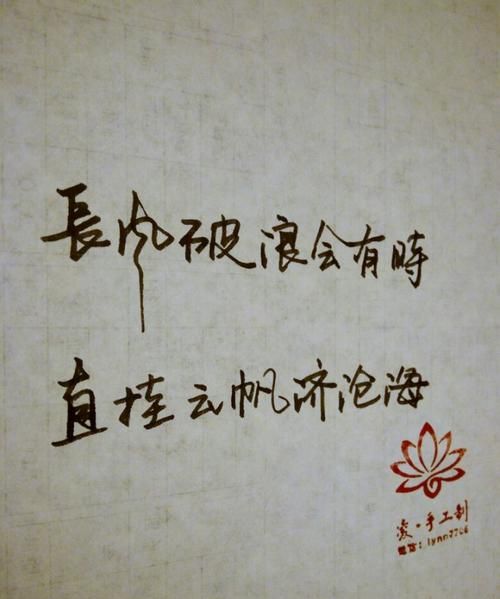 長风破浪会有時
直挂云帆济沧海
凌·手工制
微信:lynn7706